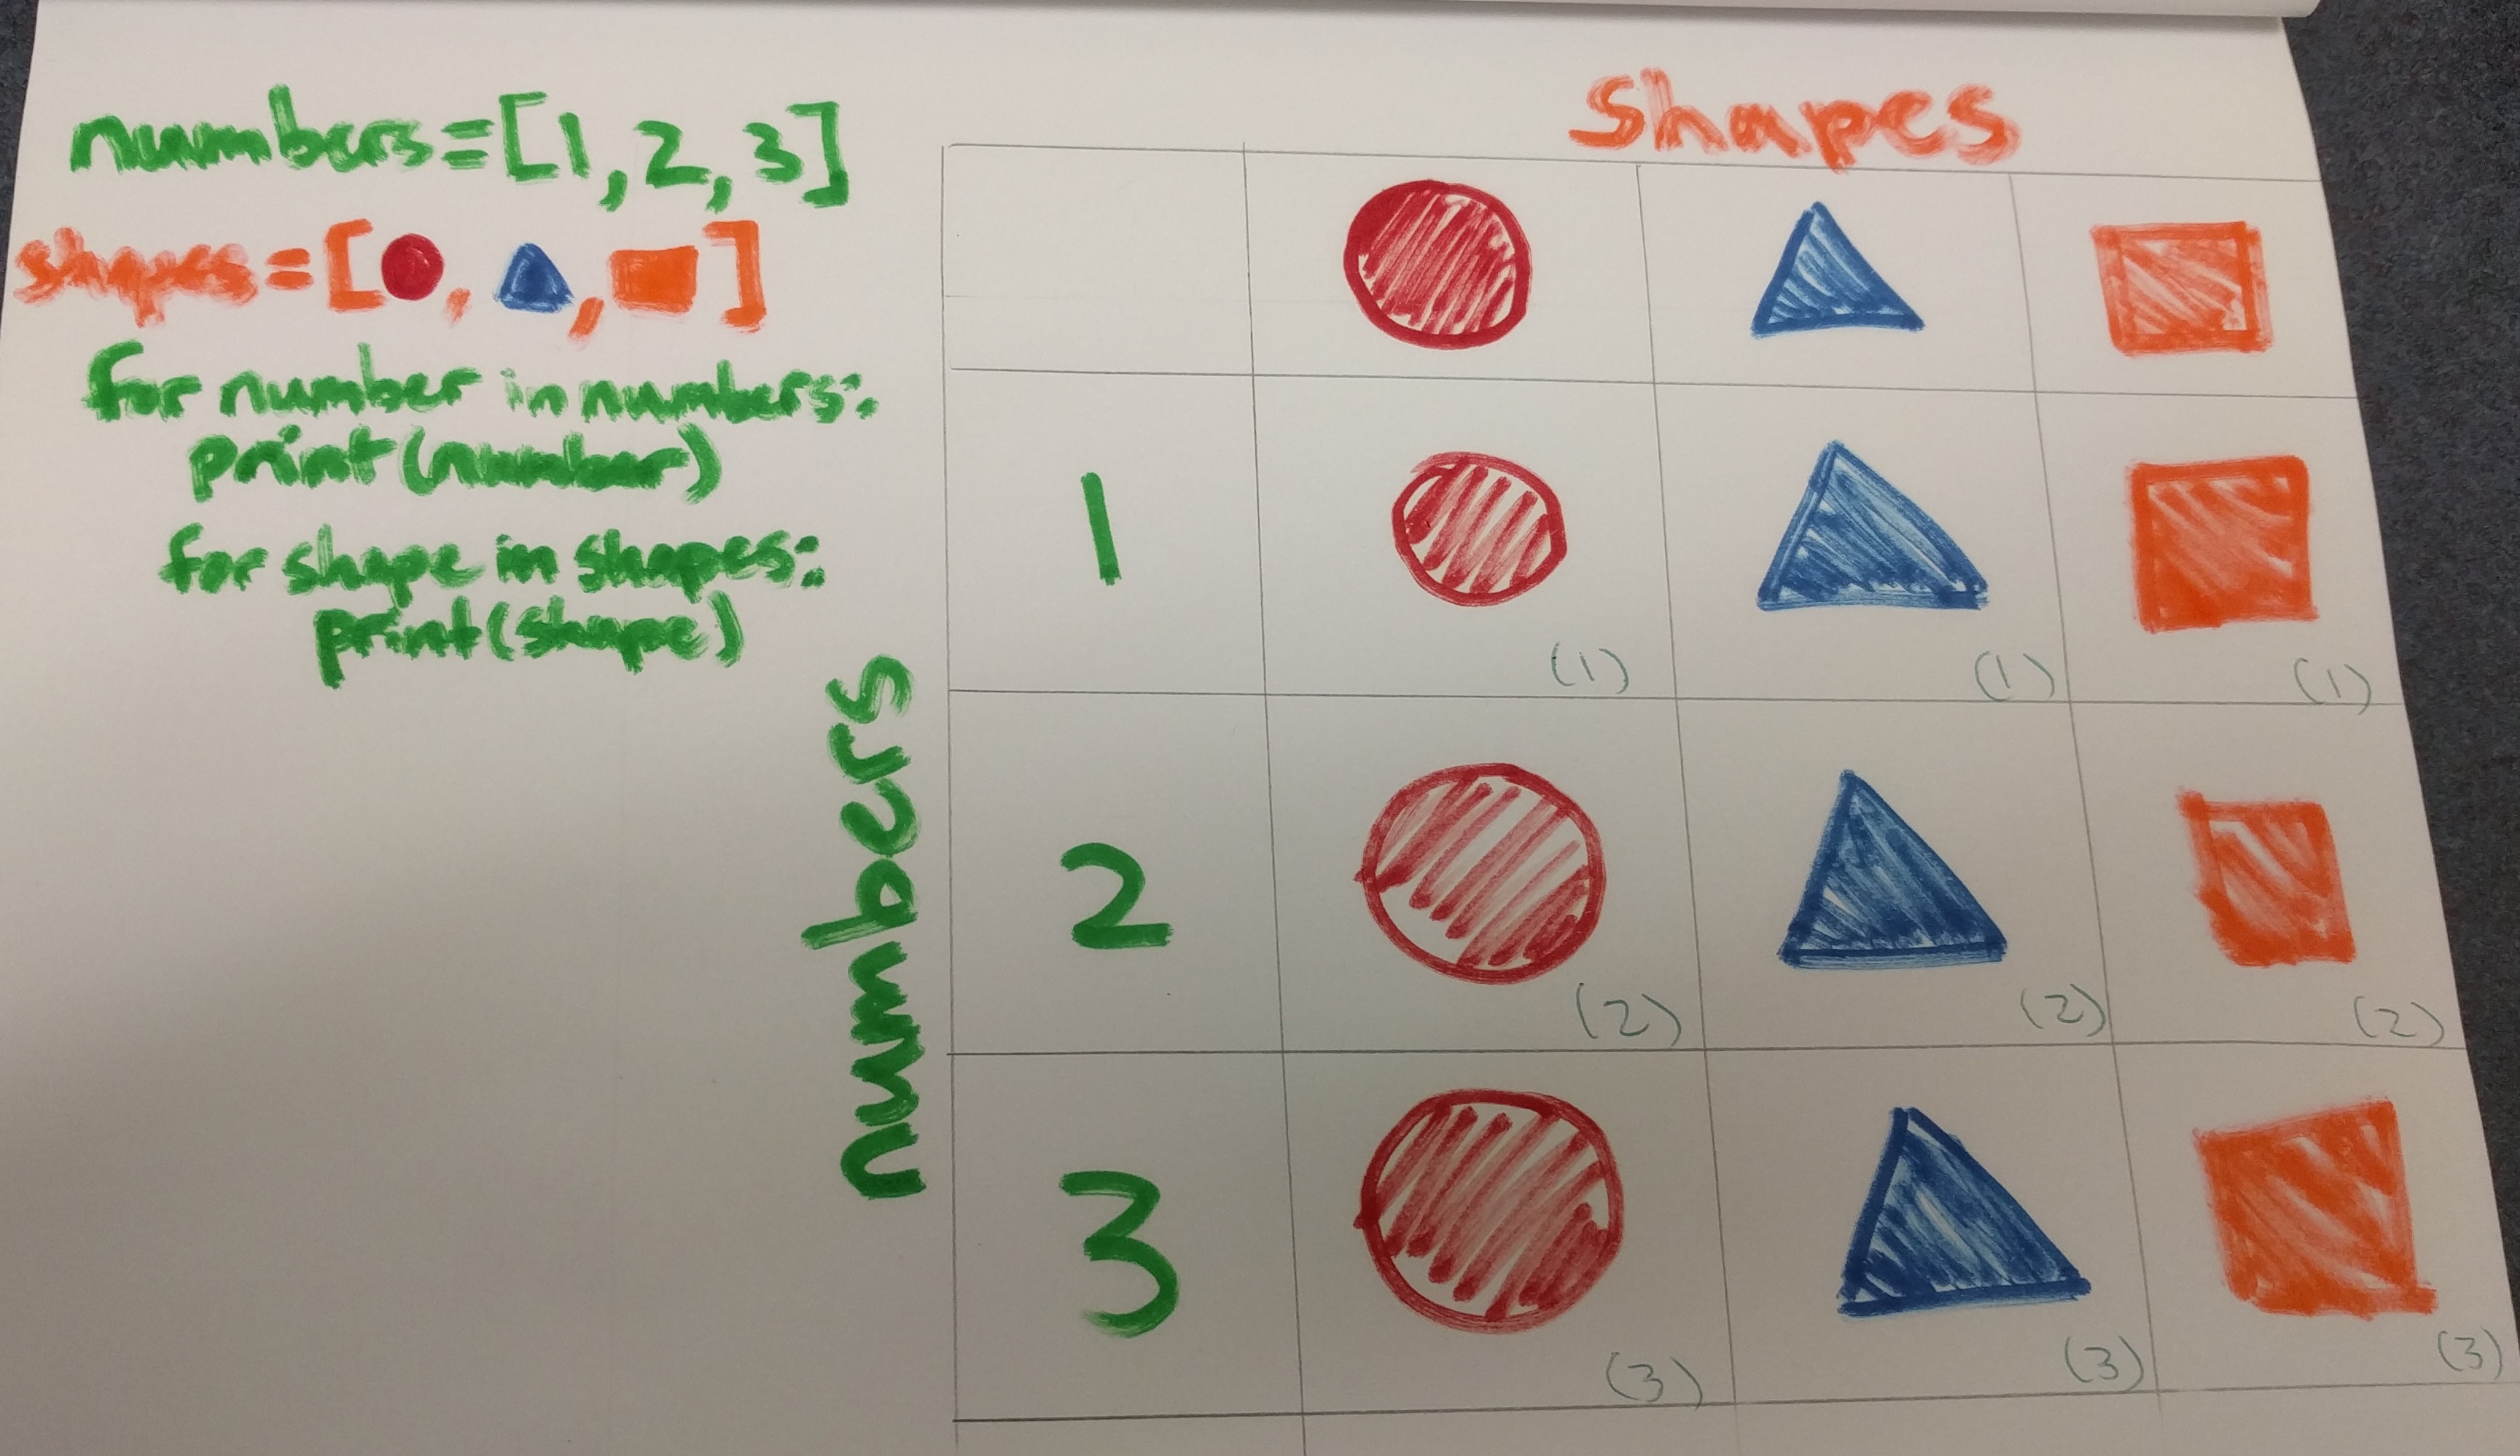 numbers=[1,2,3]
shapes=[ , , ]
for number in numbers:
print(number)
for shape in shapes:
print(shape)
Shapes
numbers
1
(1)
(1)
(1)
2
(2)
(2)
(2)
3
(3)
(3)
(3)